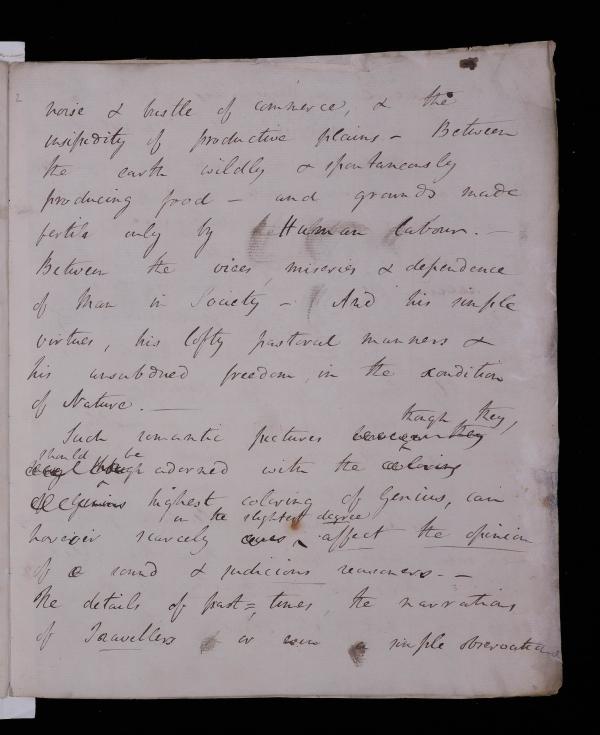 2
noise & bustle of commerce, & the
insipidity of productive plains - Between
the earth wildly & spontaneously
producing food - and grounds made
fertile only by Human labour. -
Between the vices, miseries & dependence
of Man in Society - And his simple
virtues, his lofty pastoral manners &
his unsubdued freedom, in the condition
of Nature. -
though they,
Such romantic pictures however they
should be
adorned with the coloring
of Genius highest coloring of Genius, can
in the slightest degree
however scarcely affect the opinion
of a sound & judicious reasoners. -
The details of past=times, the narrations
of Travellers or even a simple observation